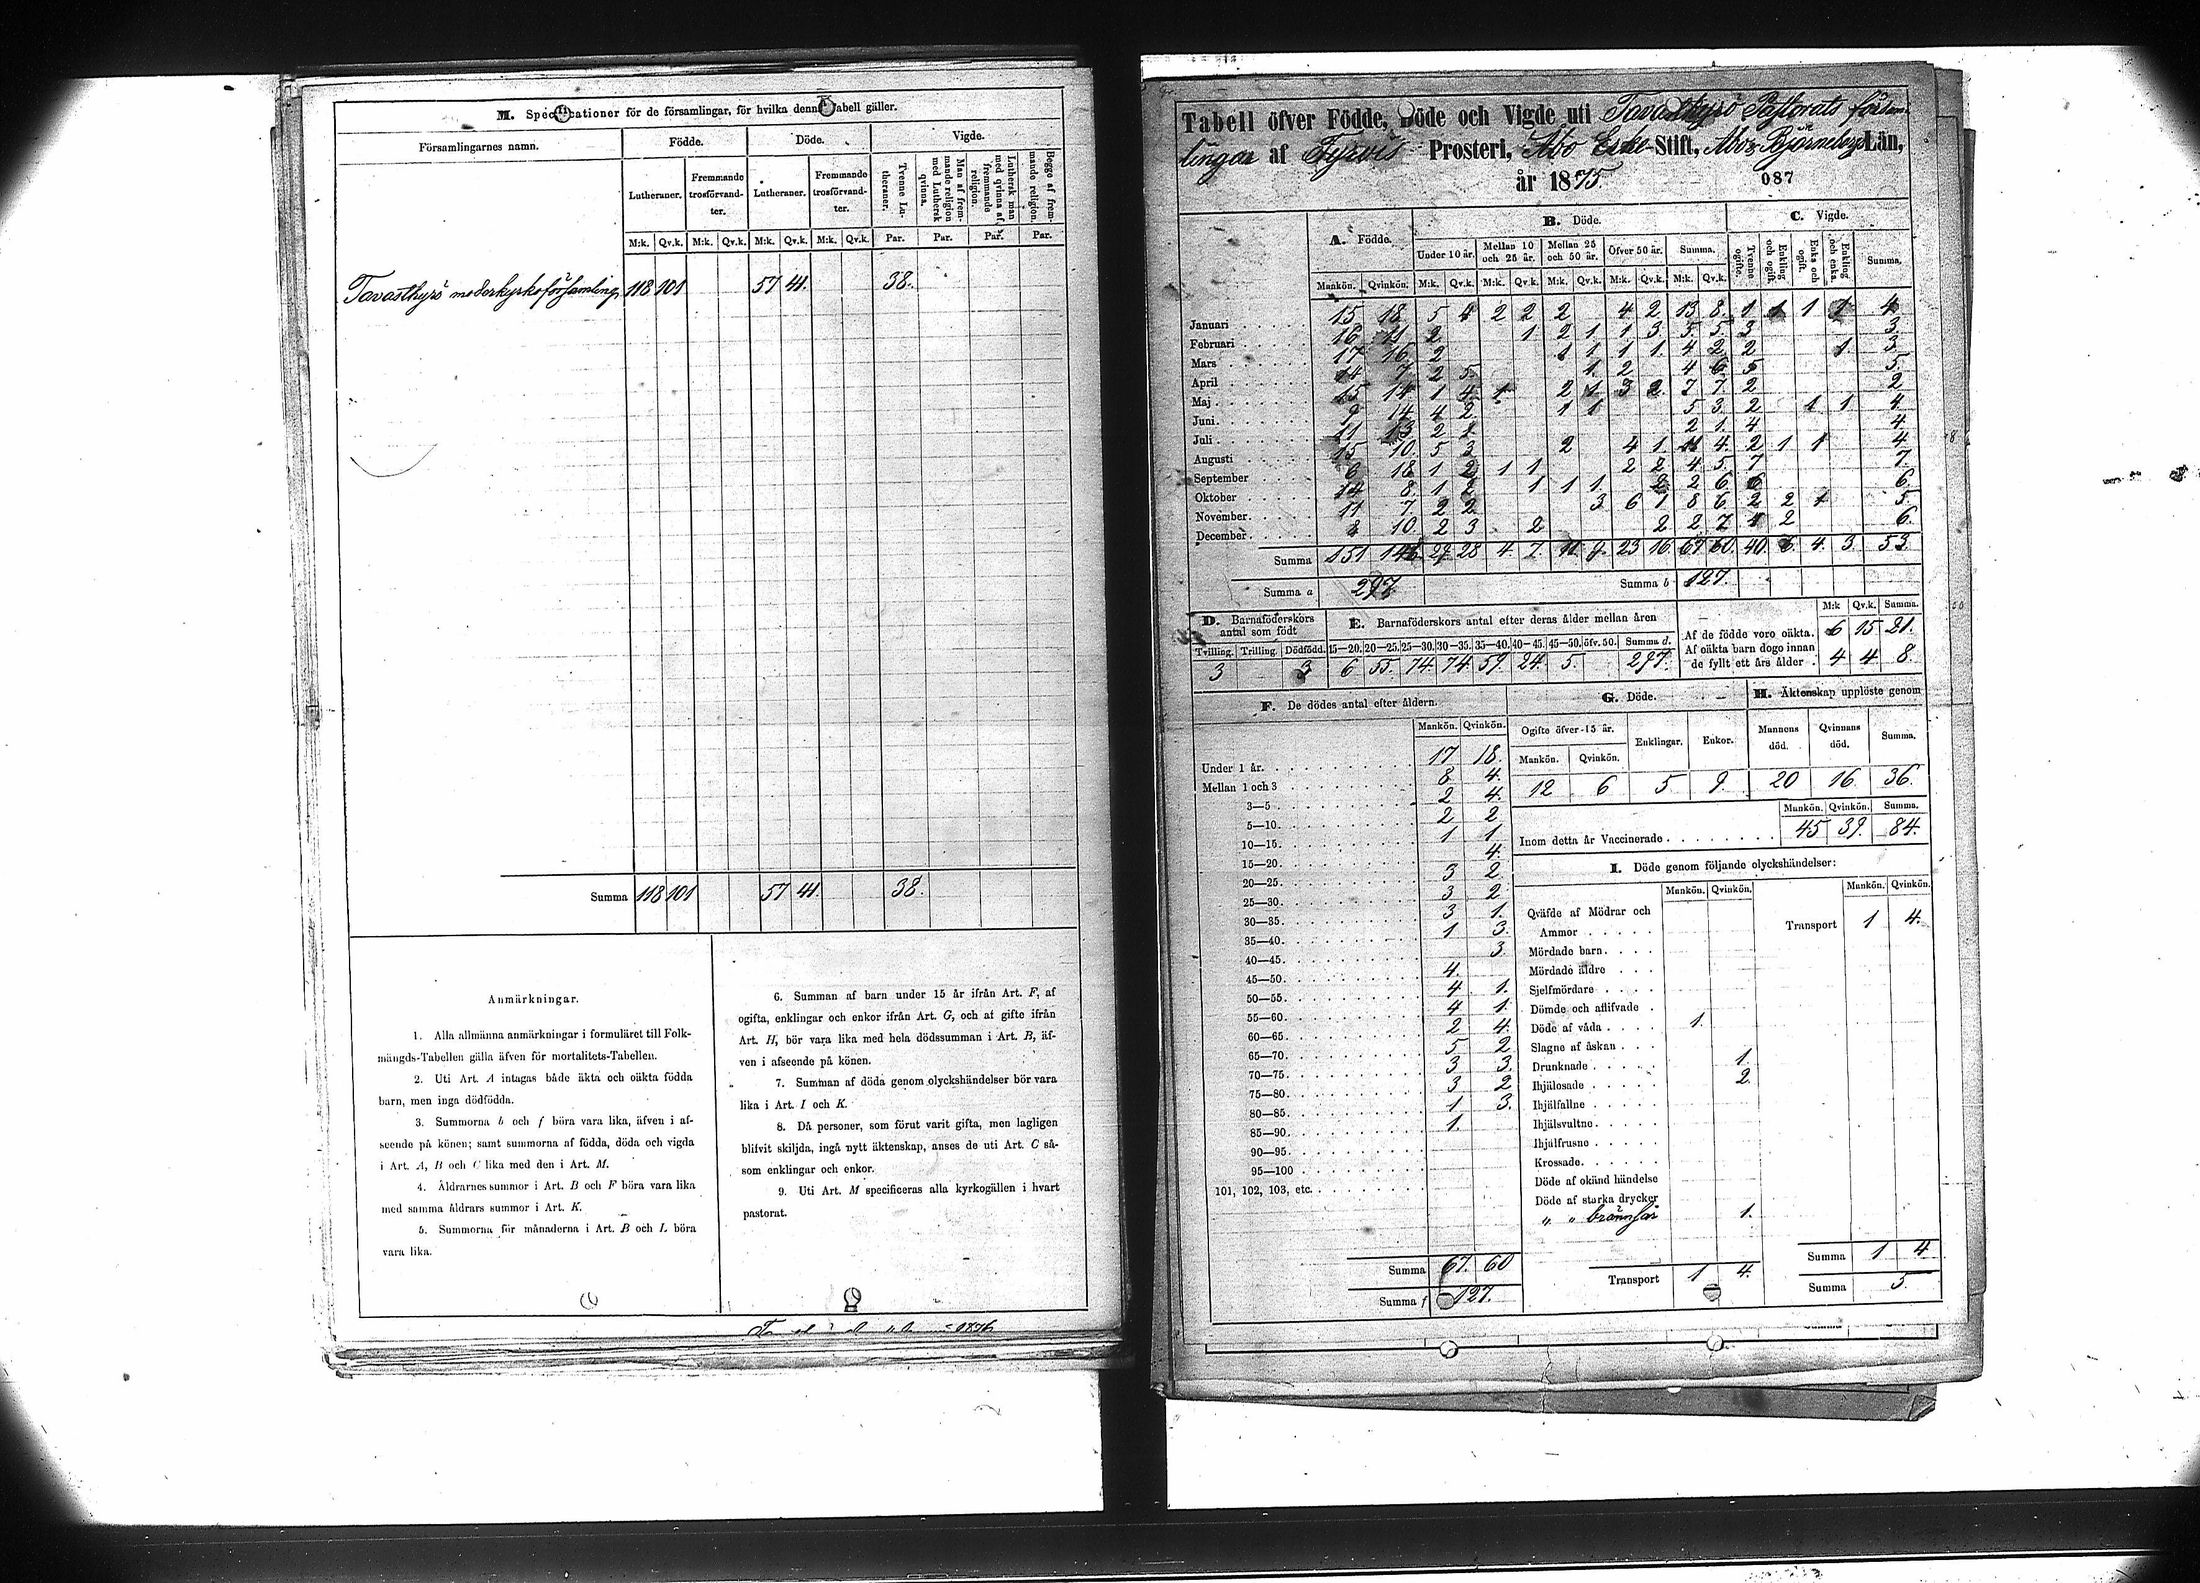 M. Specificationer för de församlingar, för hvilka denna Tabell gäller.
Församlingarnes namn. Födde. Döde. Vigde.
Lutheraner. Fremmande trosförvandter. Lutheraner. Fremmande trosförvandter. Tvenne Lutheraner. Man af fremmande religion med Luthersk qvinna. Luthersk man med qvinna af fremmande religion. Begge af fremmande religion.
M:k. Qv.k. M:k. Qv.k. M:k. Qv.k. M:k. Qv.k. Par. Par. Par. Par.
Tavastkyrö moderkyrkoförsamling 118 101 57 41. 38.
Summa 118 101 57 41. 38.
Anmärkningar.
1. Alla allmänna anmärkningar i formuläret till Folk-
mängds-Tabellen gälla äfven för mortalitets-Tabellen.
2. Uti Art. A intagas både äkta och oäkta födda
barn, men inga dödfödda.
3. Summorna b och f böra vara lika, äfven i af-
seende på könen; samt summorna af födda, döda och vigda
i Art. A, B och C lika med den i Art. M.
4. Åldrarnes summor i Art. B och F böra vara lika
med samma åldrars summor i Art. K.
5. Summorna för månaderna i Art. B och L böra
vara lika.
6. Summan af barn under 15 år ifrån Art. F, af
ogifta, enklingar och enkor ifrån Art. G, och af gifte ifrån
Art. H, bör vara lika med hela dödssumman i Art. B, äf-
ven i afseende på könen.
7. Summan af döda genom olyckshändelser bör vara
lika i Art. I och K.
8. Då personer, som förut varit gifta, men lagligen
blifvit skiljda, ingå nytt äktenskap, anses de uti Art. C så-
som enklingar och enkor.
9. Uti Art. M specificeras alla kyrkogällen i hvart
pastorat.
1876
Tabell öfver Födde, Döde och Vigde uti Tavastkyrö Pastorats försam-
lingar af Tyrvis Prosteri, Åbo Erke-Stift, Åbo-Björneborgs Län,
år 1875.
087
A. Födde. B. Döde. C. Vigde.
Under 10 år. Mellan 10 och 25 år. Mellan 25 och 50 år. Öfver 50 år. Summa. Tvenne ogifte. Enkling och ogift. Enka och ogift. Enkling och enka. Summa.
Mankön. Qvinkön. M:k. Qv.k. M:k. Qv.k. M:k. Qv.k. M:k. Qv.k. M:k. Qv.k.
Januari 15 18 5 4 2 2 2 4 2 13 8. 1 1 1 1 4
Februari 16 11 2 1 2 1 1 3 5. 5. 3 3.
Mars 17 16 2 1 1 1 1. 4 2 2 1. 3
April 14 7 2 5 1 2 4 6 5 5.
Maj 15 14 1 4 1 2 1 3 2 7 7. 2 2
Juni 9 14 4 2 1 1 5 3. 2 1 1 4
Juli 11 13 2 1 2 1. 4 4
Augusti 15 10. 5 3 2 4 1. 11 4. 2 1 1 4.
September 6 18 1 2 1 1 2 2 4 5. 7 7.
Oktober 14 8. 1 2 1 1 1 2 2 6 6 6.
November 11 7. 2 2 3 6 1 8 6 2 2 1 5.
December 8 10. 2 3 2 2 2 7 4 2 6.
Summa 151 146 29 28 4 7. 11 9. 23 16 67 60. 40. 6 4. 3. 53.
Summa a 297 Summa b 127.
D. Barnaföderskors antal som födt
Tvilling. Trilling. Dödfödd.
3 3
E. Barnaföderskors antal efter deras ålder mellan åren
15—20. 20—25. 25—30. 30—35. 35—40. 40—45. 45—50. öfv. 50. Summa d.
6 55. 74. 74. 59. 24. 5. 297.
M:k Qv.k. Summa.
Af de födde voro oäkta. 6 15 21.
Af oäkta barn dogo innan
de fyllt ett års ålder 4 4 8.
F. De dödes antal efter åldern.
Mankön. Qvinkön.
Under 1 år. 17 18.
Mellan 1 och 3 8 4.
3—5 2 4.
5—10. 2 2
10—15. 1 1
15—20. 4.
20—25. 3 2
25—30. 3 2
30—35. 3 1.
35—40. 1 3.
40—45. 3
45—50. 4.
50—55. 4 1.
55—60. 4 1
60—65. 2 4.
65—70. 5 2
70—75. 3 3.
75—80. 3 2
80—85. 1 3.
85—90. 1.
90—95.
95—100
101, 102, 103, etc.
Summa 67. 60
Summa f 127.
G. Döde.
Ogifte öfver 15 år. Enklingar. Enkor.
Mankön. Qvinkön.
12 6 5 9.
H. Äktenskap upplöste genom
Mannens död. Qvinnans död. Summa.
20 16 36.
Mankön. Qvinkön. Summa.
Inom detta år Vaccinerade 45 39. 84.
I. Döde genom följande olyckshändelser:
Mankön. Qvinkön. Mankön. Qvinkön.
Qväfde af Mödrar och
Ammor
Mördade barn.
Mördade äldre
Sjelfmördare
Dömde och aflifvade
Döde af våda 1.
Slagne af åskan
Drunknade 1.
Ihjälosade 2.
Ihjälfallne
Ihjälsvultne
Ihjälfrusne
Krossade.
Döde af okänd händelse
Döde af starka drycker
" " brännsår 1.
Transport 1 4.
Transport 1 4.
Summa 1 4
Summa 5.